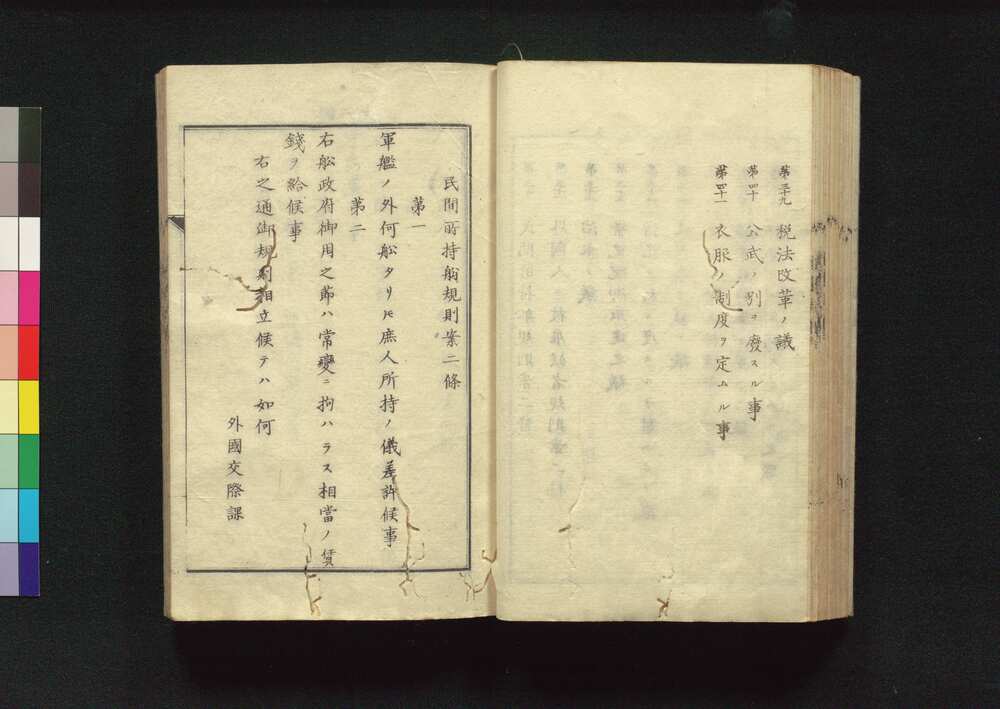 第三十九 税法改革ノ議
第四十 公武ノ別ヲ廢スル事
第四十一 衣服ノ制度ヲ定ムル事
民間所持舩規則案二條
第一
軍艦ノ外何舩タリ𪜈庶人所持ノ儀差許候事
第二
右舩政府御用之節ハ常變ニ拘ハラス相當ノ賃
錢ヲ給候事
右之通御規則相立候テハ如何
外國交際課